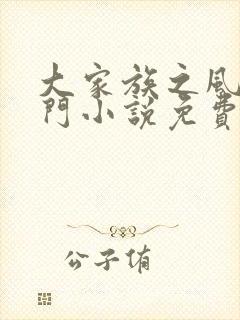 大家族之風
門小説免費
公子侑